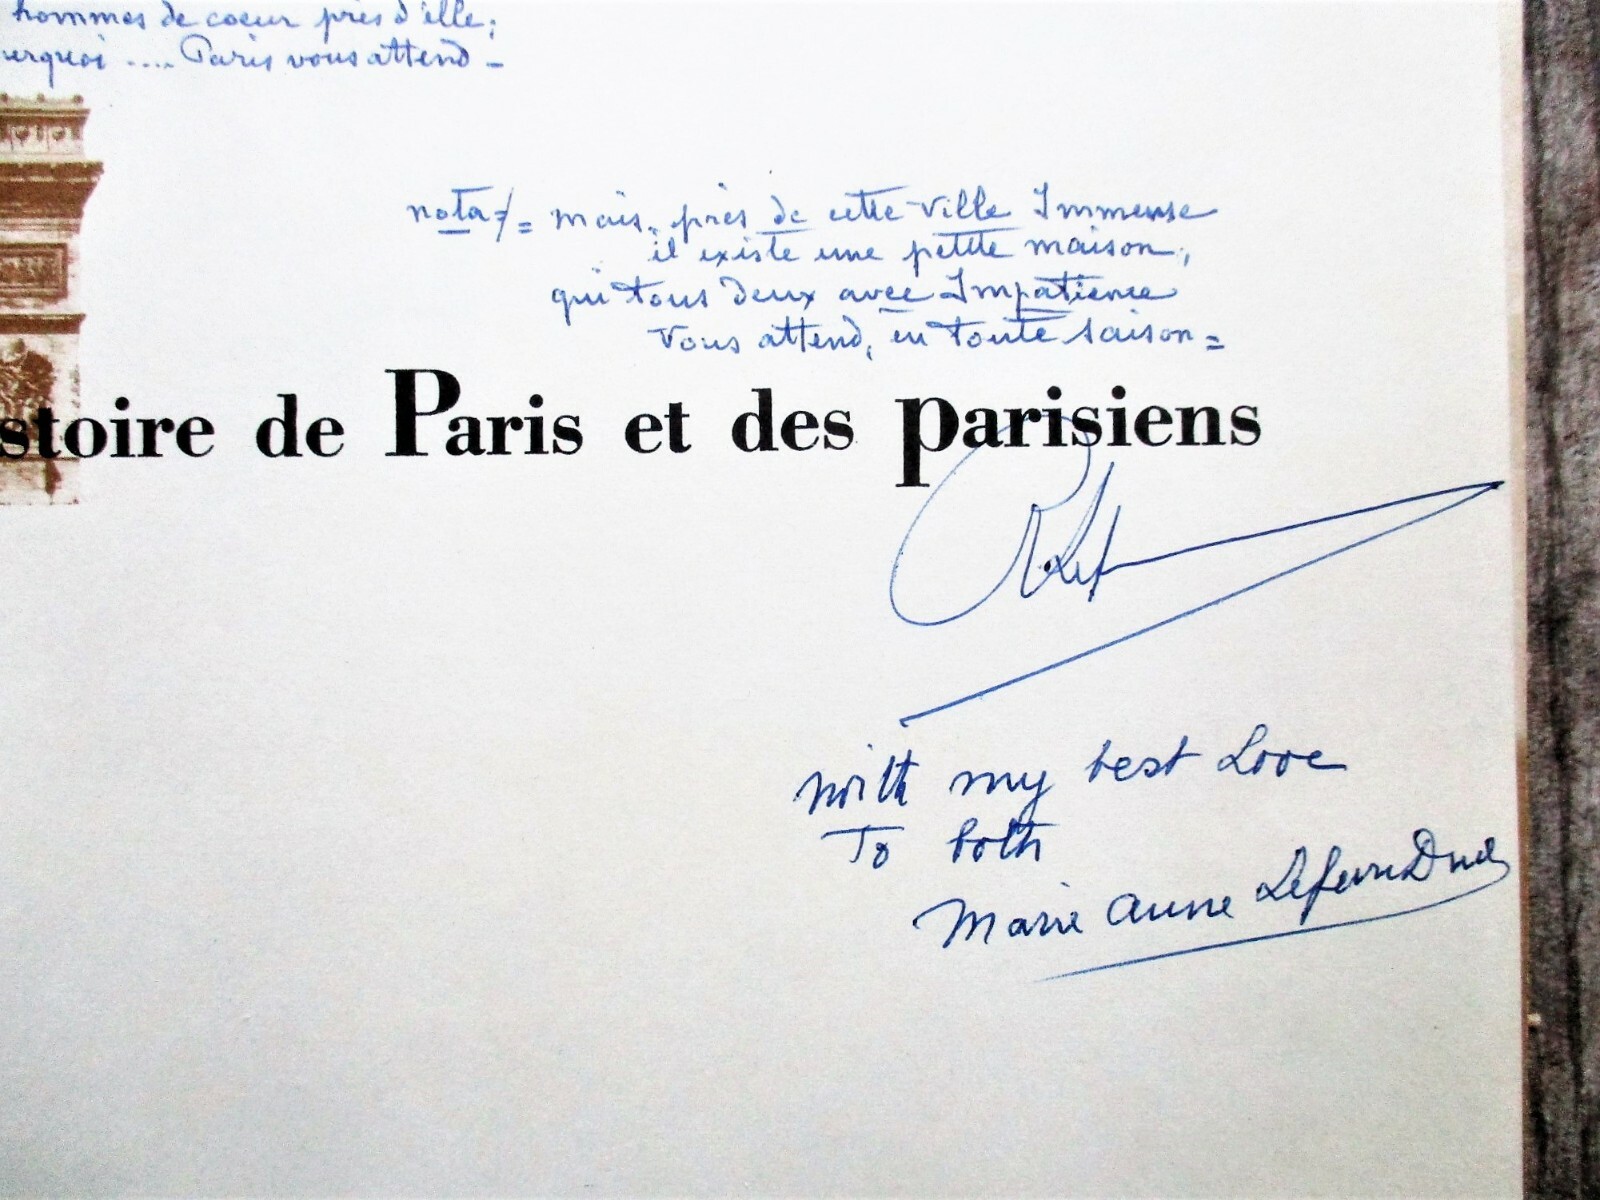 hommes de coeur près d'elle;
urquoi .... Paris vous attend -
nota = mais, près de cette ville Immense
il existe une petite maison,
qui tous deux avec Impatience
vous attend, en toute saison =
stoire de Paris et des parisiens
with my best Love
To both
Marie Anne